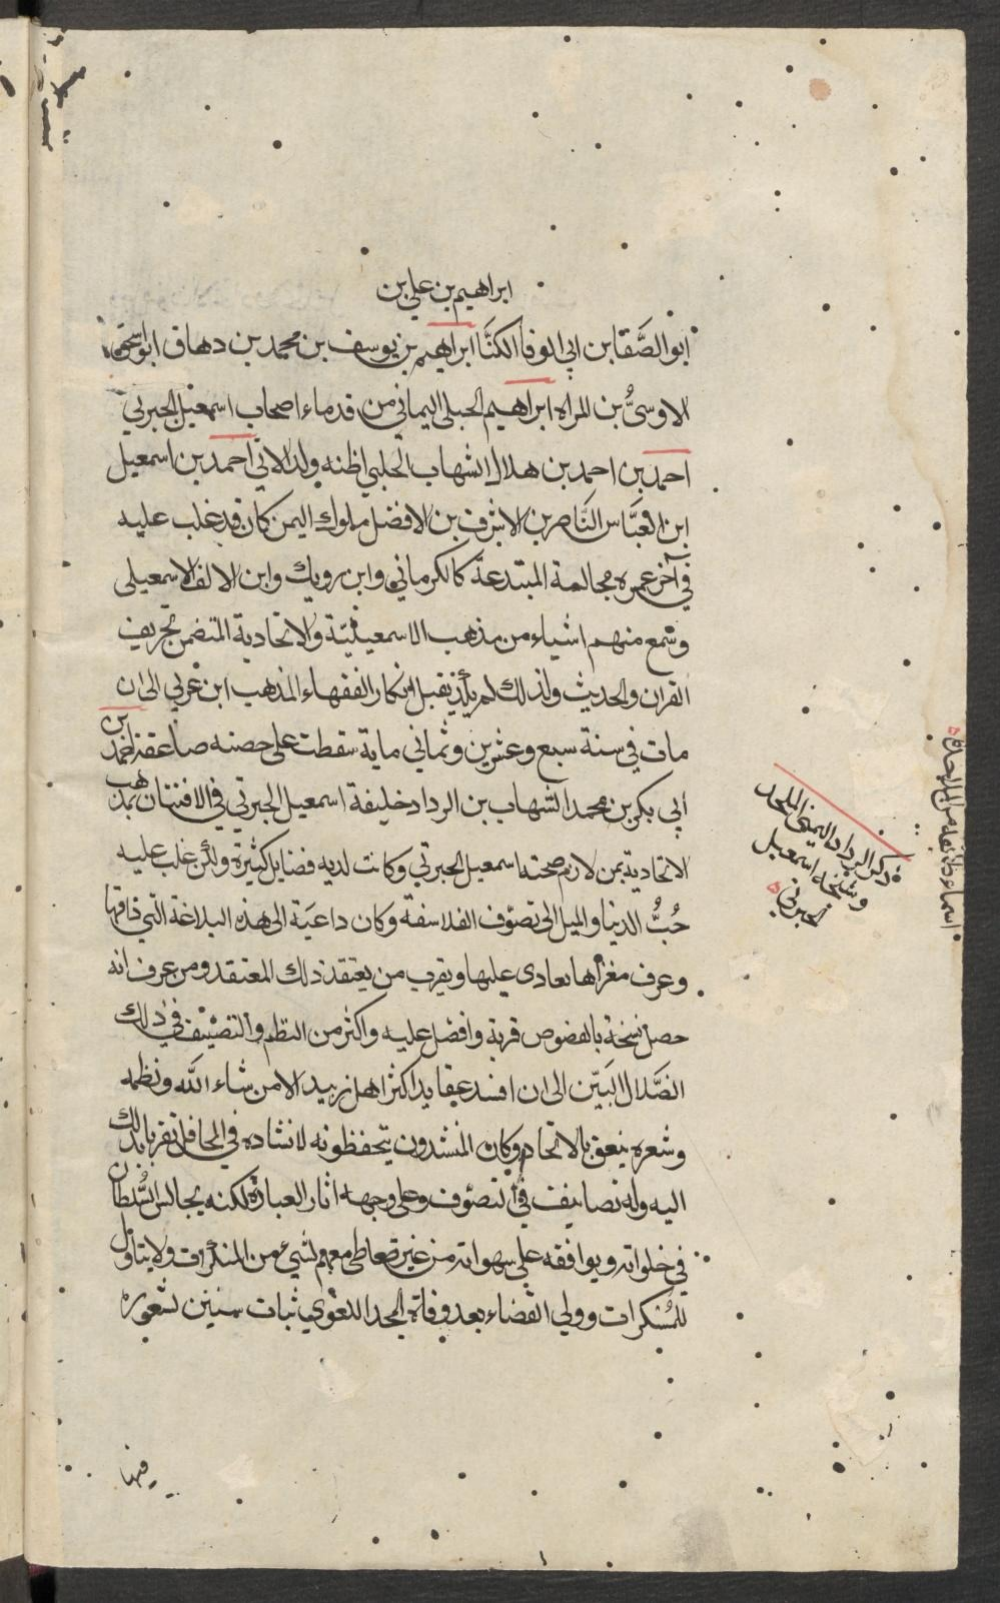 ابراهيم بن علي بن
ابو الصَّقا بن ابي الوفا الكنَّا ابراهيم بن يوسف بن محمد بن دهاق ابو اسحق
الاوسيُّ بن المراه ابراهيم الجبلي اليماني من قدماء اصحاب اسمعيل الجبرتي
احمد بن احمد بن هلال الشهاب الحلبي اظنه ولد الاتي احمد بن اسمعيل
ابن العبَّاس النَّاصر بن الاشرف بن الافضل ملوك اليمن كان قد غلب عليه
في آخر عمره مجالسة المبتدعة كالكرماني وابن رويك وابن الالف الاسمعيلى
وسمع منهم اشياء من مذهب الاسمعيليّة والاتحادية المتضمن تحريف
القران والحديث ولذلك لم يقبل انكار الفقهاء لمذهب ابن عربي الى ان
مات في سنة سبع وعشرين وثماني ماية سقطت على حصنه صاعقة احمد بن
ابي بكر بن محمد الشهاب بن الرداد خليفة اسمعيل الجبرتي في الافتتان بمذهب
الاتحادية ممن لازم صحبة اسمعيل الجبرتي وكانت لديه فضايل كثيرة ولكن غلب عليه
حُبُّ الدنيا والميل الى تصوّف الفلاسفة وكان داعيَة الى هذه البلاغة التي ذاقها
وعرف مغزاها يعادى عليها ويقرب من يعتقد ذلك المعتقد ومن عرف انه
حصل نسخة بالفصوص قربه وافضل عليه واكثر من النظم والتصنيف في ذلك
الضَّلال البَيّن الى ان افسد عقايد اكثر اهل زبيد الا من شاء الله ونظمه
وشعره ينعق بالاتحاد وكان المنشدون يتحفظونه لانشاده في المحافل تقربا بذلك
اليه وله تصانيف في التصوّف وعلى وجهه اثار العبادة لكنه يجالس السُّلطان
في خلواته ويوافقه على شهواته من غير تعاطى معهم لشيء من المنكرات ولا يتاول
للمُسْكرات وولي القضاء بعد وفاة المجد اللغوي ثبات سنين لشعوره
فيها
ذكر الرداد اليمني الملحد
وشيخه اسمعيل
الجبرتي